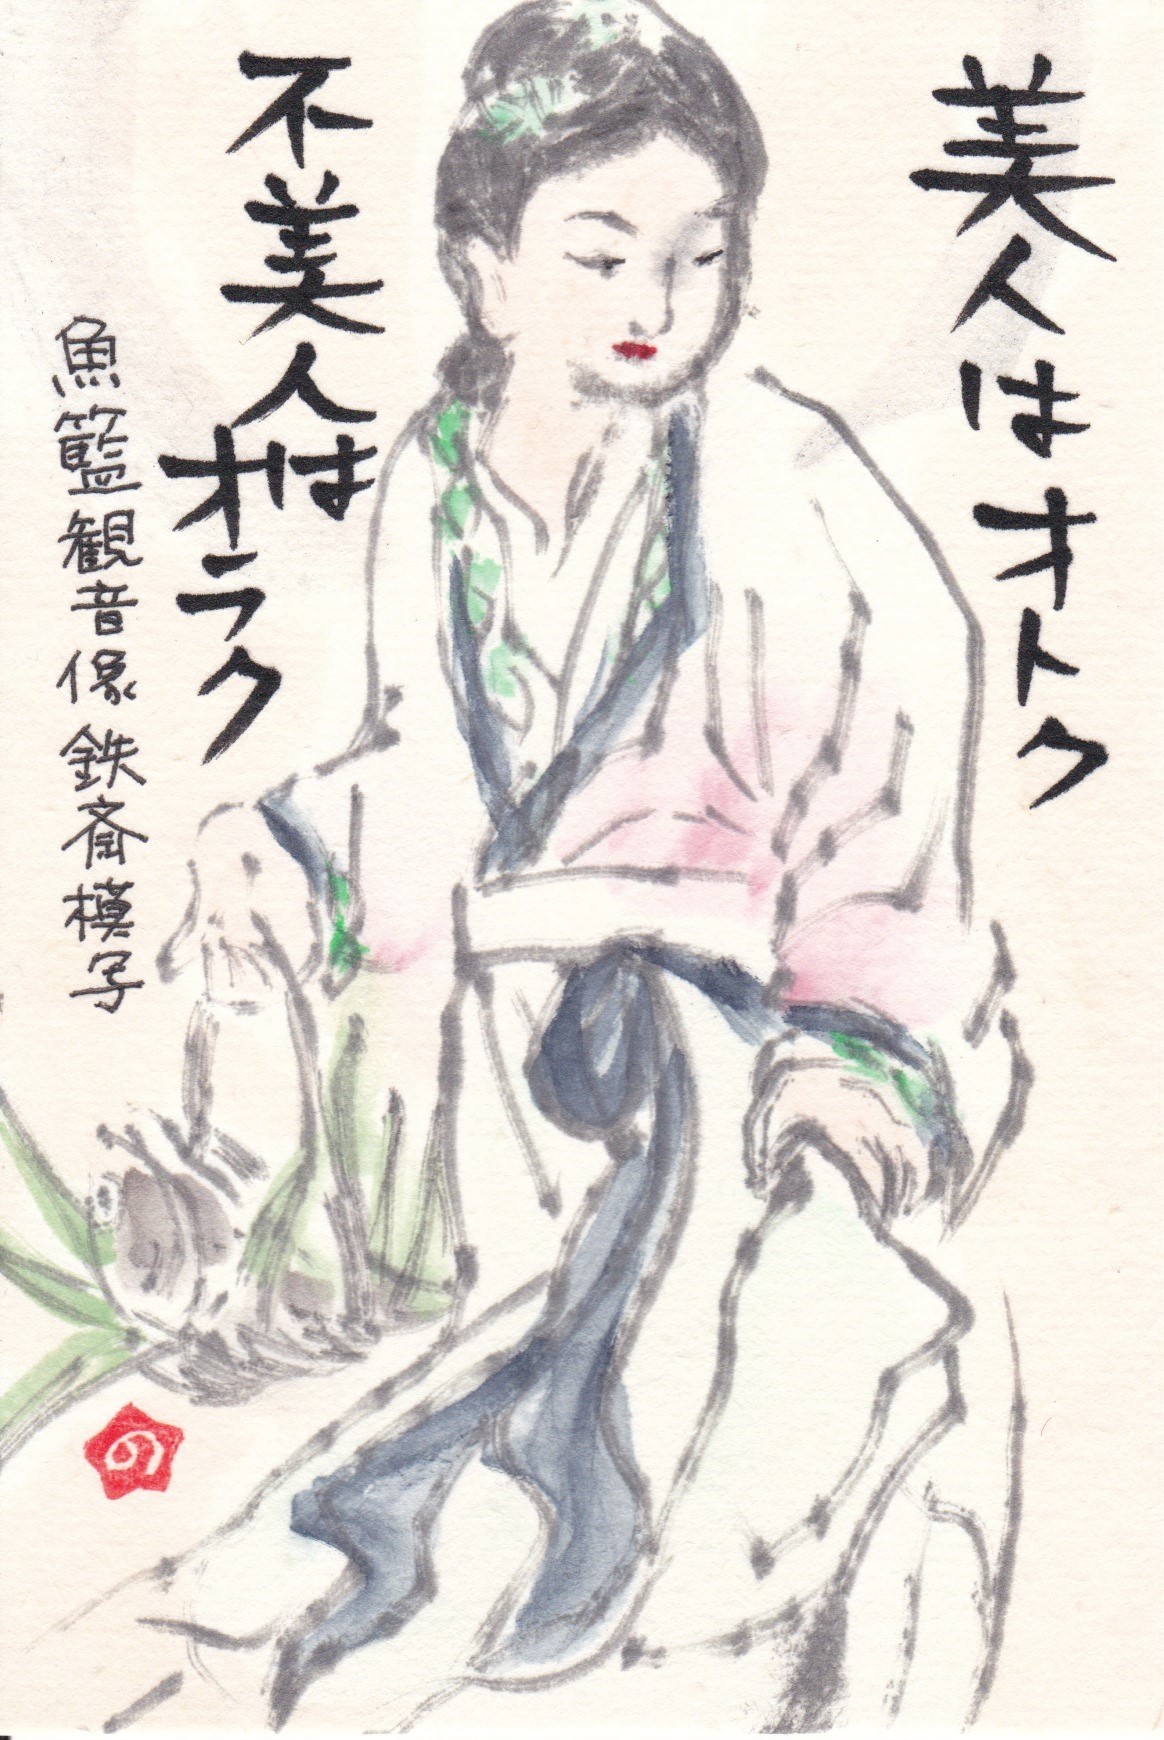 美人はオトク
不美人は
オラク
魚籃観音像 鉄斎模写
の